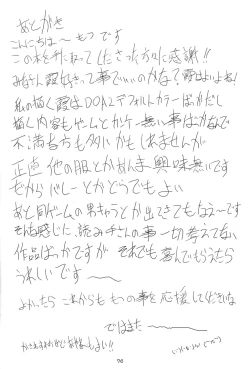 あとがき
こんにちは〜 もつ です
この本を手に取ってくださった方々に感謝!!
みなさん霞好きって事でいいのかな? 霞はよいよね!
私の描く霞はDOA2デフォルトカラーばかだし
描く内容もゲームとか 無い事ばかなんで
不満者方も多いかもしれませんが
正直 他の服とかあんま興味無いです
だから バレーとかどうでもよい
あと同ゲームの男キャラとか出てきてもなえ〜です
そんな感じた、読み手さんの事一切考えてない
作品ばっかですが それでも喜んでもらえたら
うれしいです 〜
よかったら これからも もつの事を応援してくださいな
ではまた 〜